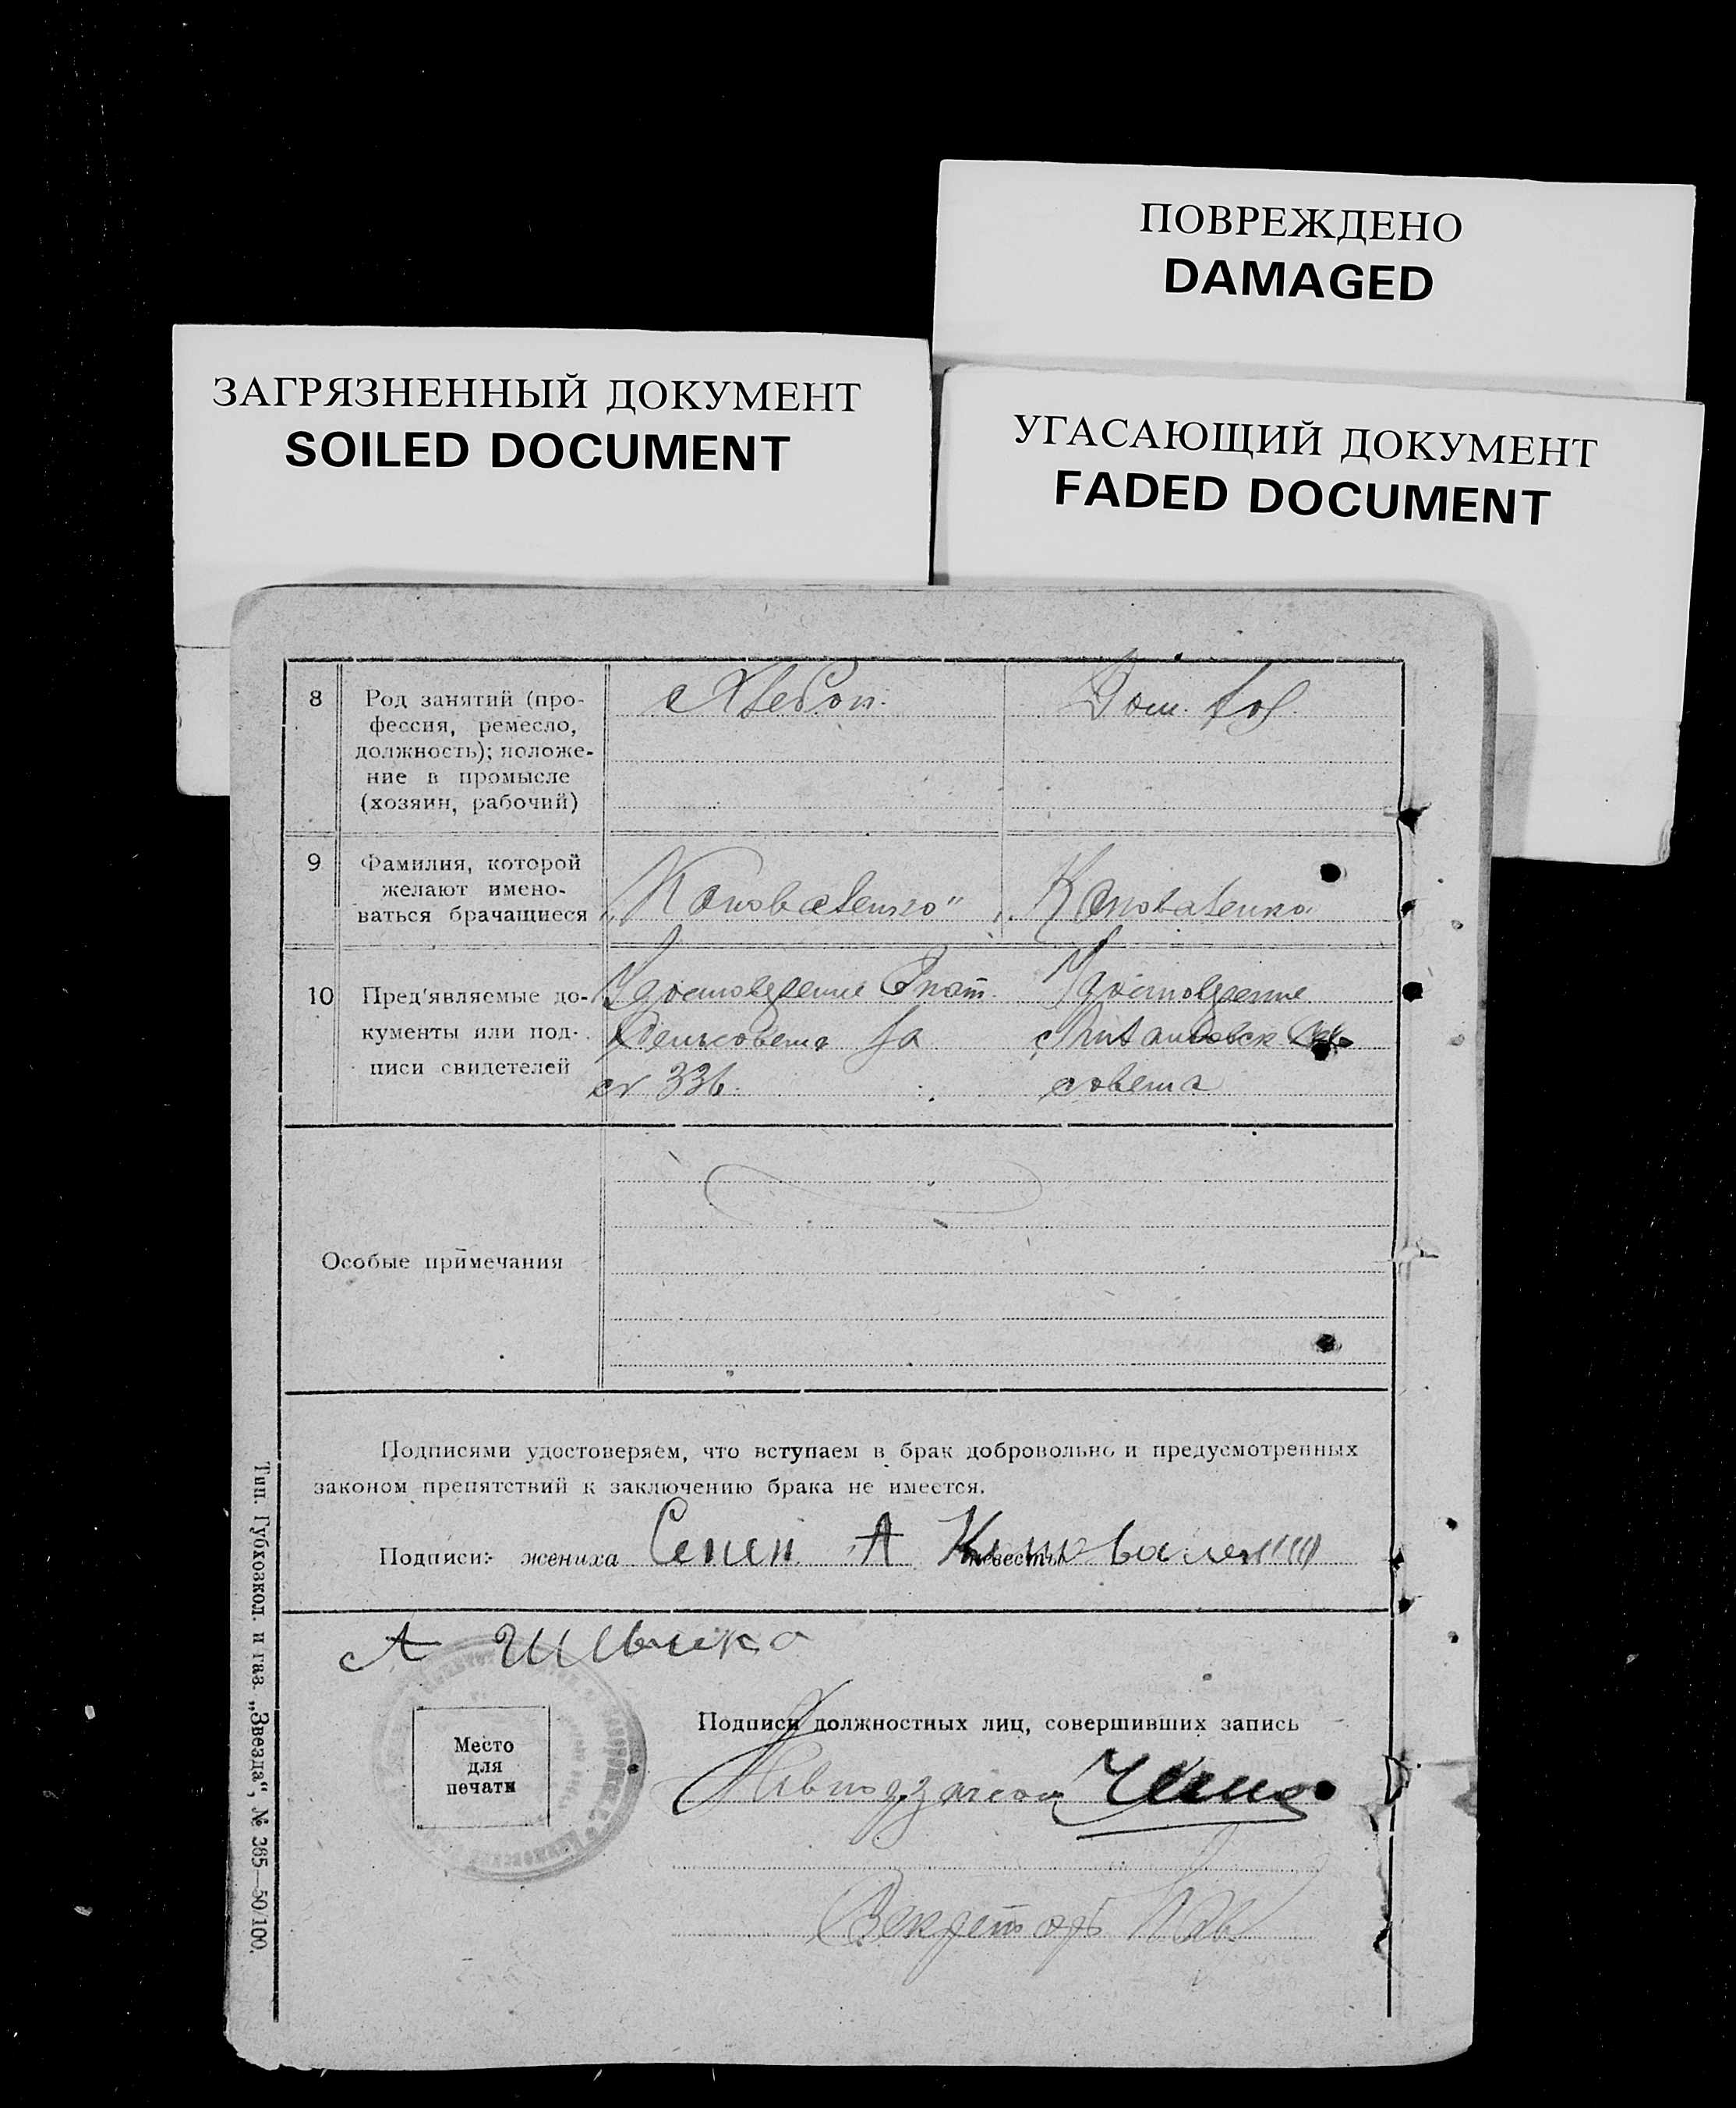 ПОВРЕЖДЕНО
DAMAGED
ЗАГРЯЗНЕННЫЙ ДОКУМЕНТ
SOILED DOCUMENT
УГАСАЮЩИЙ ДОКУМЕНТ
FADED DOCUMENT
8
Род занятий (про-
фессия, ремесло,
должность); положе-
ние в промысле
(хозяин, рабочий)
Хлебоп.
Дом. хоз.
9
Фамилия, которой
желают имено-
ваться брачащиеся
„Коноваленко"
„Коноваленко
10
Пред'являемые до-
кументы или под-
писи свидетелей
Удостоверение
за
№ 336.
Удостоверение
совета
Особые примечания
Подписями удостоверяем, что вступаем в брак добровольно и предусмотренных
законом препятствий к заключению брака не имеется.
Подписи:- жениха Семен А невесты
А Швыка
Место
для
печати
Подписи должностных лиц, совершивших запись
Завподзагсом
Секретарь
Тип. Губкозкол. и газ. „Звезда", № 365—50/100.